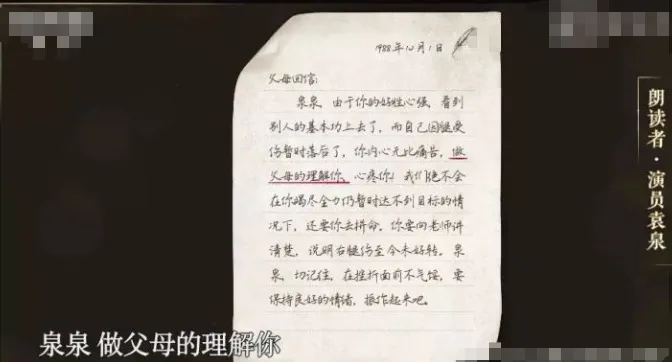 1988年12月1日
父母回信:
泉泉,由于你的好胜心强,看到
别人的基本功上去了,而自己因腿受
伤暂时落后了,你内心无比痛苦,做
父母的理解你、心疼你!我们绝不会
在你竭尽全力仍暂时达不到目标的情
况下,还要你去拼命。你要向老师讲
清楚,说明右腿伤至今未好转。泉
泉,切记住,在挫折面前不气馁,要
保持良好的情绪,振作起来吧。
朗读者·演员袁泉
泉泉 做父母的理解你